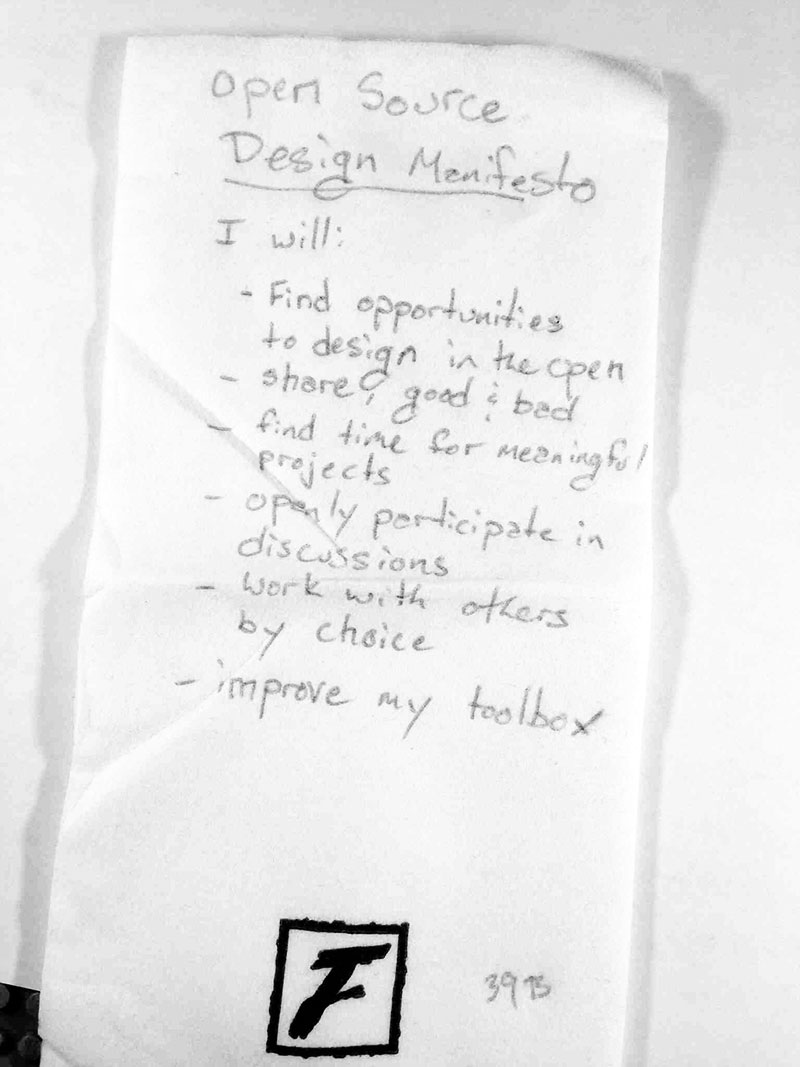 open Source
Design Manifesto
I will:
- Find opportunities
to design in the open
- share, good & bad
- find time for meaningful
projects
- openly participate in
discussions
- work with others
by choice
- improve my toolbox
F